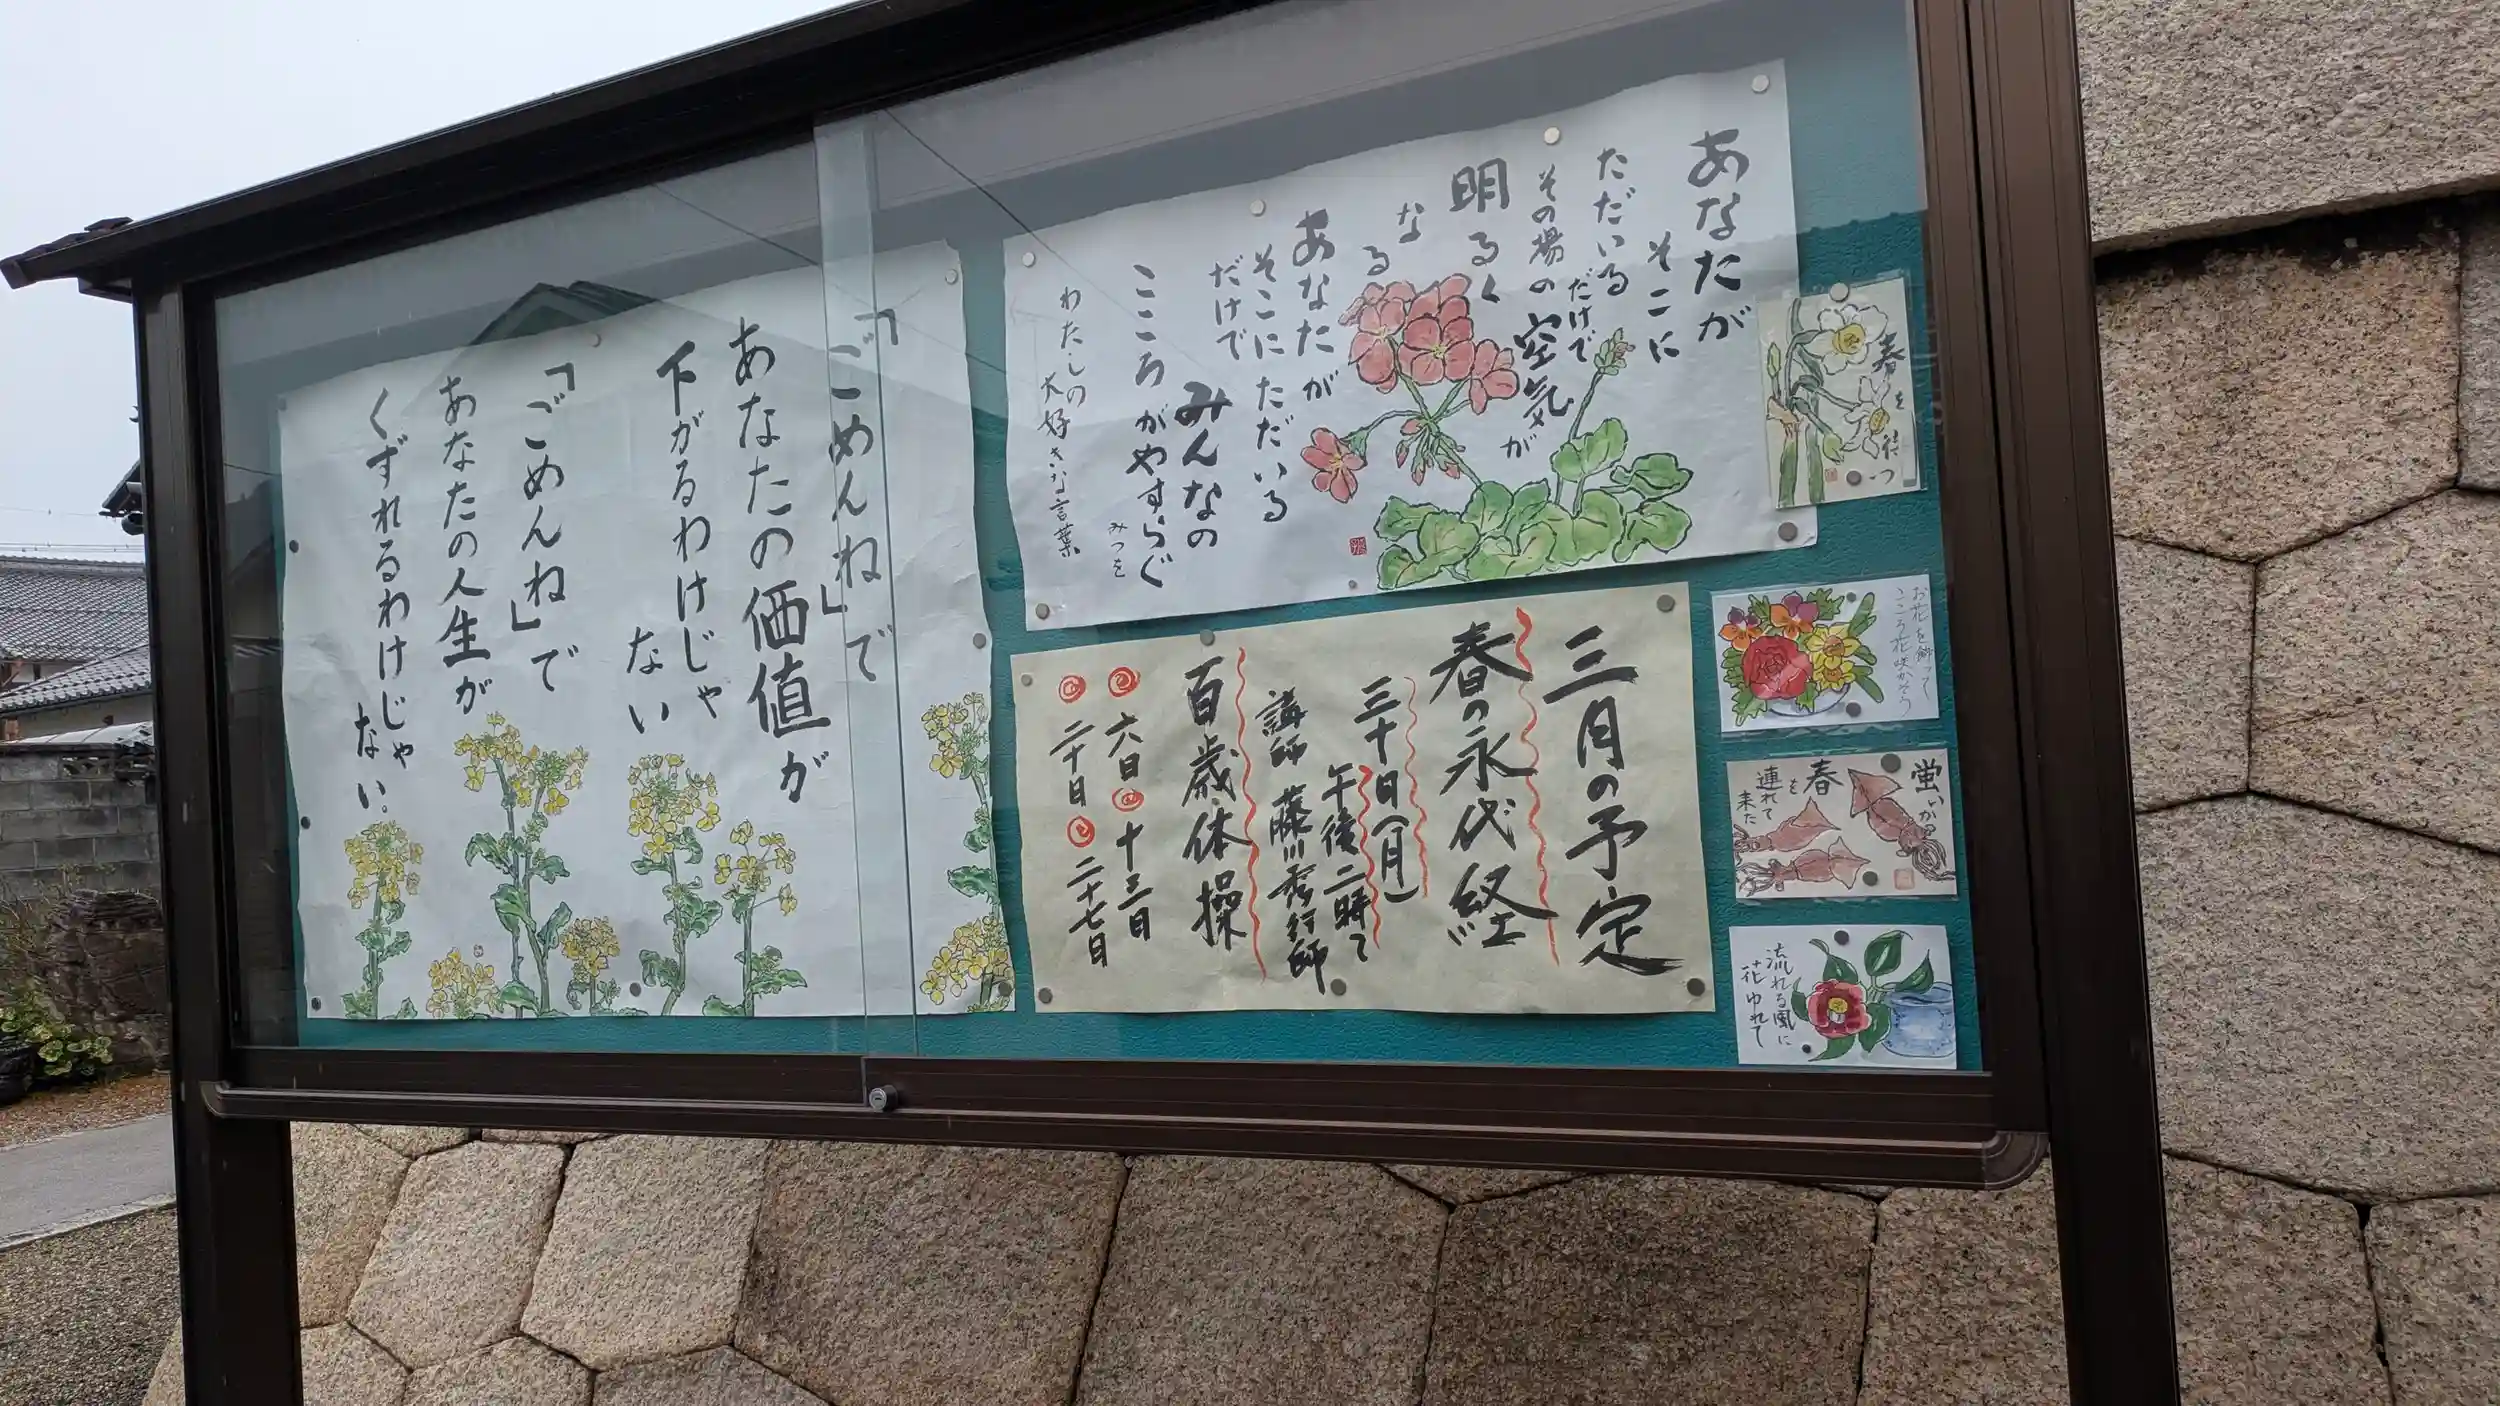 あなたが
そこに
ただいる
だけで
その場の
空気が
明るく
なる
あなたが
そこにただいる
だけで
みんなの
こころがやすらぐ
みつを
わたしの
大好きな言葉
春を待つ
三月の予定
春の永代経
三十日(月)
午後二時て
講師 藤川秀行師
百歳体操
六日 十三日
二十日 二十七日
お花を飾って
こころ花咲かそう
蛍いか
春を
連れて
来た
流れる風に
花ゆれて
「ごめんね」で
あなたの価値が
下がるわけじゃ
ない
「ごめんね」で
あなたの人生が
くずれるわけじゃ
ない。